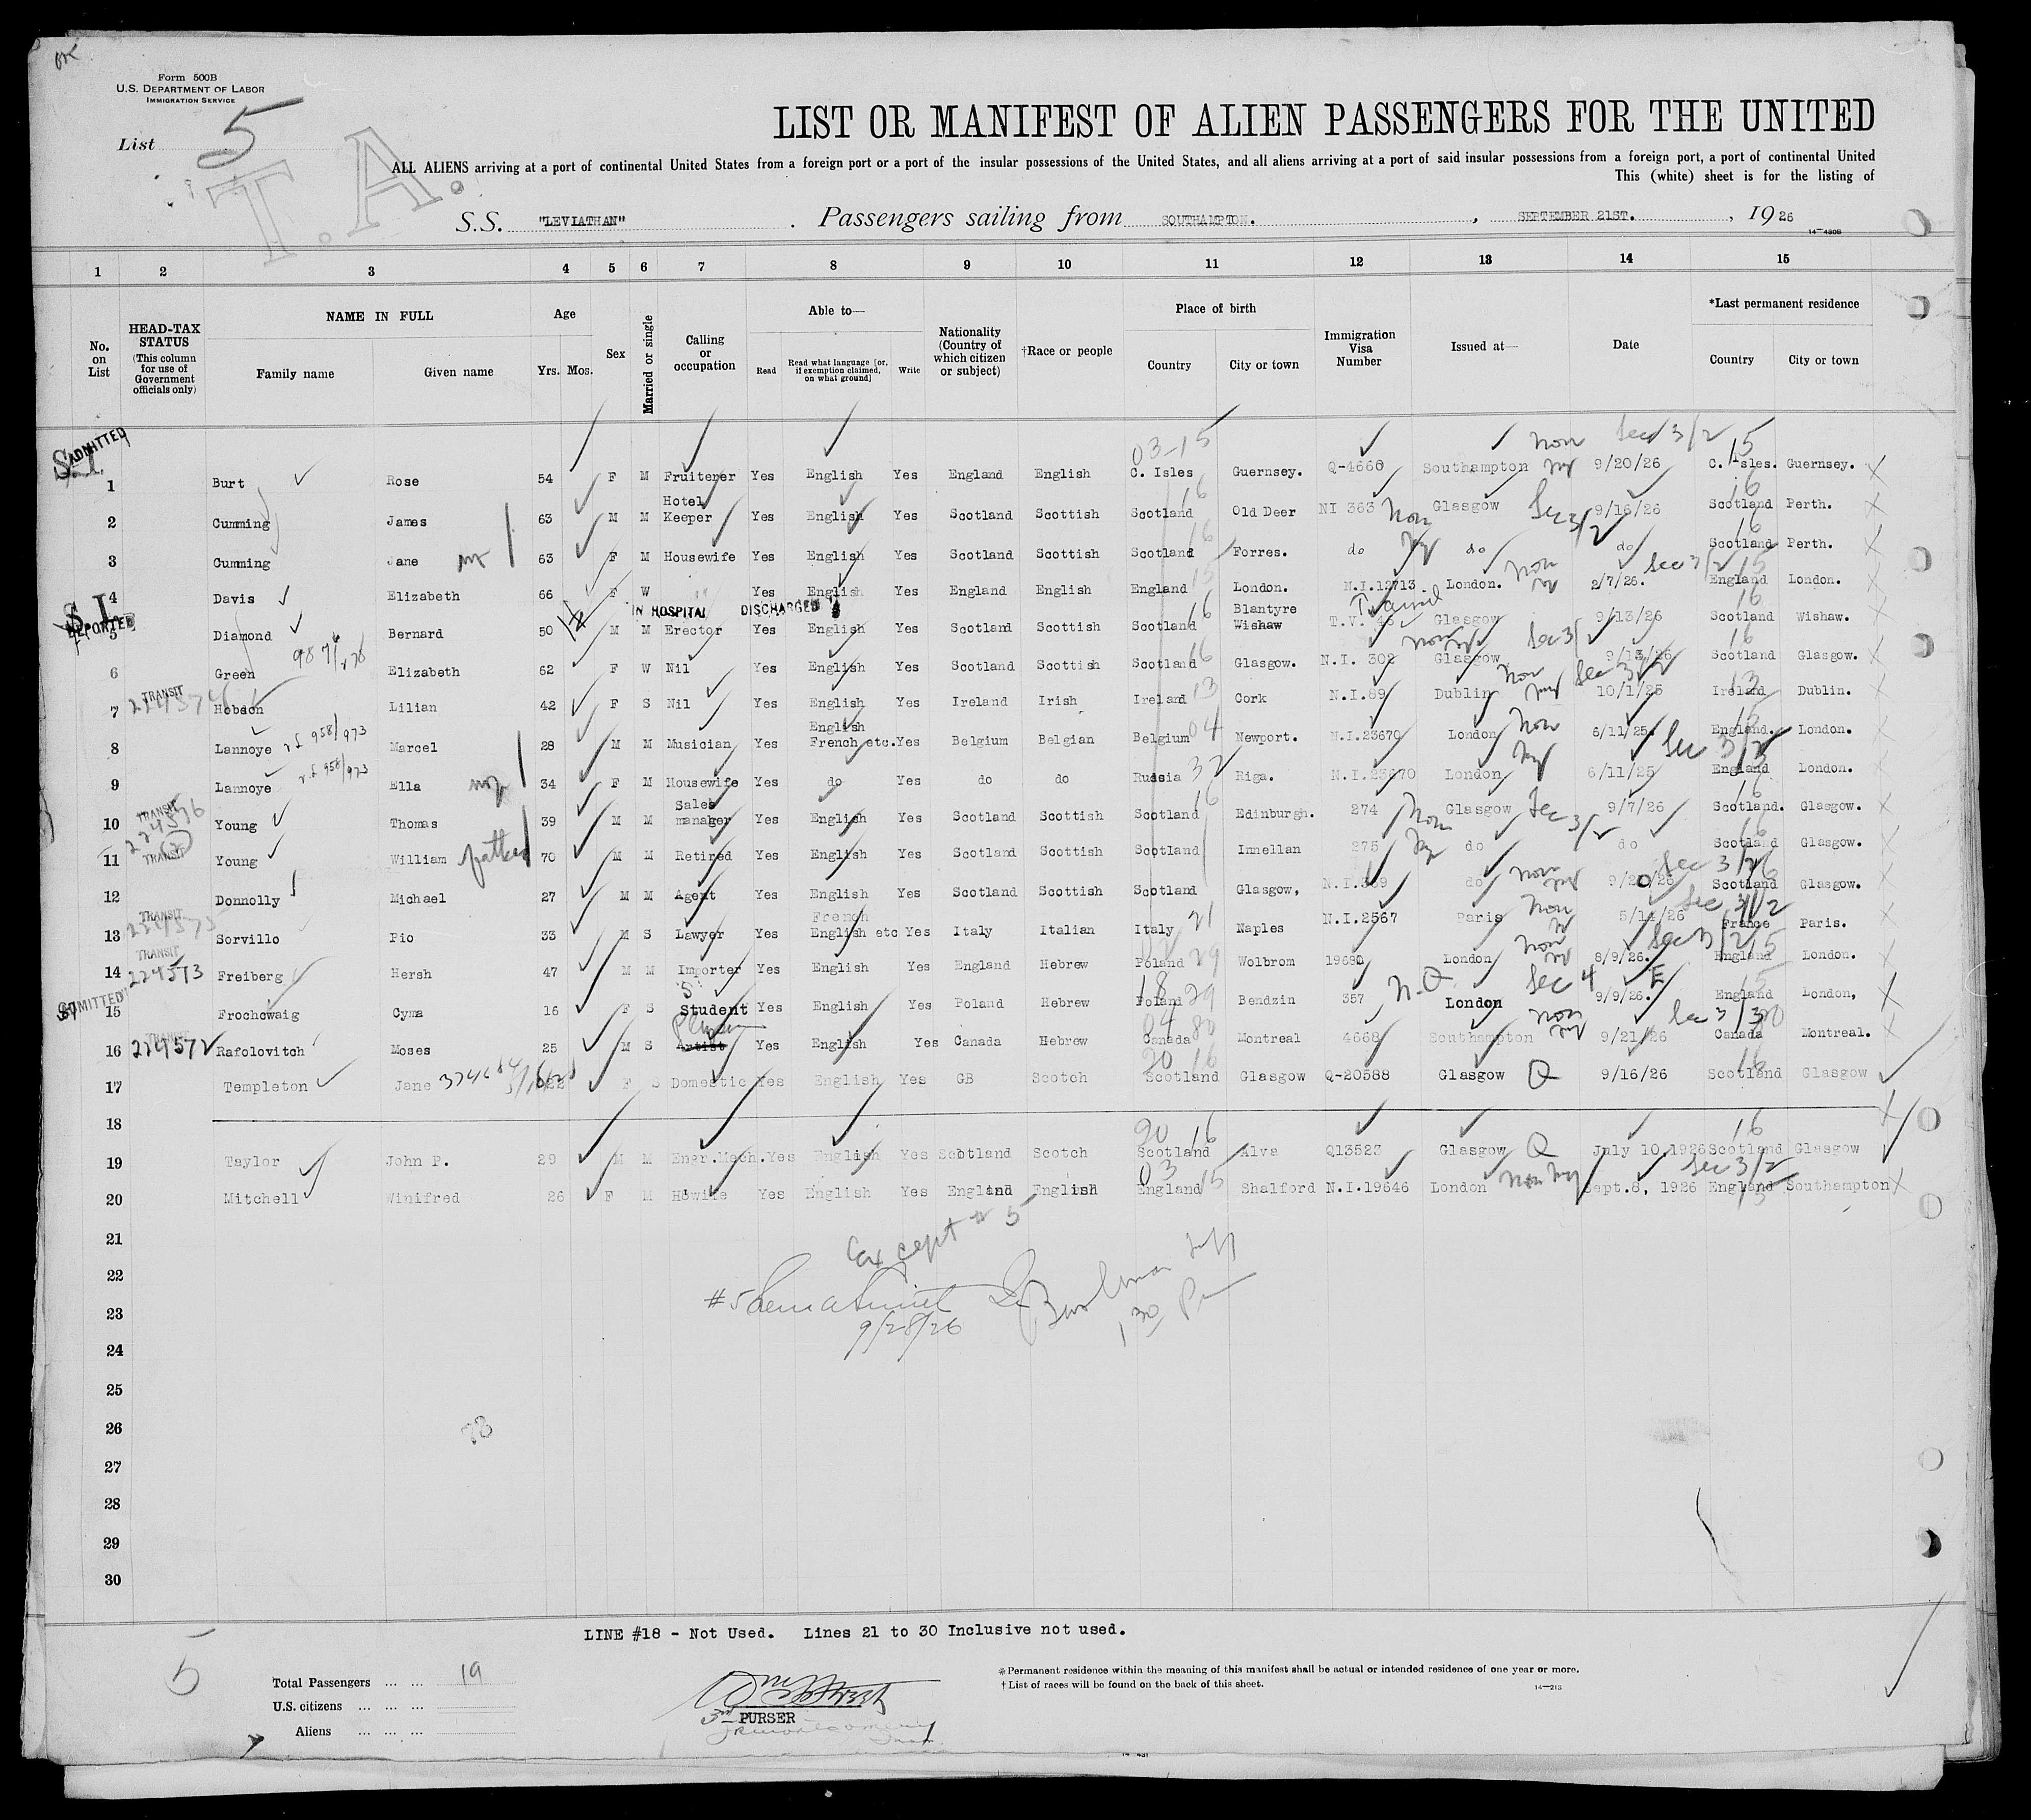 Form 500B
U.S. DEPARTMENT OF LABOR
IMMIGRATION SERVICE
List 5
T. A.
LIST OR MANIFEST OF ALIEN PASSENGERS FOR THE UNITED
ALL ALIENS arriving at a port of continental United States from a foreign port or a port of the insular possessions of the United States, and all aliens arriving at a port of said insular possessions from a foreign port, a port of continental United
This (white) sheet is for the listing of
S.S. "LEVIATHAN" . Passengers sailing from SOUTHAMPTON. , SEPTEMBER 21ST. , 1926
14-480B
1 2 3 4 5 6 7 8 9 10 11 12 13 14 15
No. on List
HEAD-TAX STATUS (This column for use of Government officials only)
NAME IN FULL
Family name Given name
Age
Yrs. Mos.
Sex
Married or single
Calling or occupation
Able to—
Read Read what language [or, if exemption claimed, on what ground] Write
Nationality (Country of which citizen or subject)
†Race or people
Place of birth
Country City or town
Immigration Visa Number
Issued at—
Date
*Last permanent residence
Country City or town
S.I. ADMITTED
03-15 Non Sec 3/2 15
1 Burt Rose 54 F M Fruiterer Yes English Yes England English C. Isles Guernsey. Q-4660 Southampton 9/20/26 C. Isles. Guernsey.
2 Cumming James 63 M M Hotel Keeper Yes English Yes Scotland Scottish Scotland 16 Old Deer NI 363 Non Glasgow Sec 3/2 9/16/26 Scotland 16 Perth.
3 Cumming Jane 63 F M Housewife Yes English Yes Scotland Scottish Scotland 16 Forres. do do do Scotland 16 Perth.
4 Davis Elizabeth 66 F W Yes English Yes England English England 15 London. N.I.12713 London. Non 2/7/26. Sec 3/2 England 15 London.
S.I. DEPORTED
IN HOSPITAL DISCHARGED
5 Diamond Bernard 50 M M Erector Yes English Yes Scotland Scottish Scotland 16 Blantyre Wishaw T.V. 45 Glasgow 9/13/26 Scotland 16 Wishaw.
6 Green Elizabeth 62 F W Nil Yes English Yes Scotland Scottish Scotland 16 Glasgow. N.I. 302 Glasgow 9/13/26 Scotland 16 Glasgow.
7 TRANSIT Hobson Lilian 42 F S Nil Yes English Yes Ireland Irish Ireland 13 Cork N.I.89 Dublin Non 10/1/25 Ireland 13 Dublin.
8 Lannoye 958/973 Marcel 28 M M Musician Yes English French etc. Yes Belgium Belgian Belgium 04 Newport. N.I.23670 London Non 6/11/25. England. London.
9 Lannoye 958/973 Ella 34 F M Housewife Yes do Yes do do Russia 32 Riga. N.I.23670 London 6/11/25 Sec 3/2 England London.
10 TRANSIT 224576 Young Thomas 39 M M Sales manager Yes English Yes Scotland Scottish Scotland 16 Edinburgh. 274 Non Glasgow Sec 3/2 9/7/26 Scotland. Glasgow.
11 TRANSIT Young William father 70 M M Retired Yes English Yes Scotland Scottish Scotland Innellan 275 do do Scotland 16 Glasgow.
12 Donnolly Michael 27 M M Agent Yes English Yes Scotland Scottish Scotland Glasgow, N.I.369 do Non Scotland Glasgow.
13 TRANSIT 224575 Sorvillo Pio 33 M S Lawyer Yes French English etc Yes Italy Italian Italy 21 Naples N.I.2567 Paris Non 5/14/26 Sec 3/2 France Paris.
14 TRANSIT 224573 Freiberg Hersh 47 M M Importer Yes English Yes England Hebrew Poland 29 Wolbrom 19690 London Non 8/9/26. Sec 3/2 England 15 London.
S.I. ADMITTED
15 Frochcwaig Cyma 16 F S Student Yes English Yes Poland Hebrew Poland 29 Bendzin 357 N.Q. London Sec 4 E 9/9/26. England 15 London,
16 TRANSIT 224572 Rafolovitch Moses 25 M S Artist Yes English Yes Canada Hebrew Canada 80 Montreal 4668 Southampton Non 9/21/26 Sec 3/3 Canada Montreal.
17 Templeton Jane 22 F S Domestic Yes English Yes GB Scotch Scotland 20 16 Glasgow Q-20588 Glasgow Q 9/16/26 Scotland 16 Glasgow
18
19 Taylor John P. 29 M M Engr.Mech. Yes English Yes Scotland Scotch Scotland 20 16 Alva Q13523 Glasgow Q July 10,1926 Scotland 16 Glasgow
20 Mitchell Winifred 26 F M Hewife Yes English Yes England English England 03 15 Shalford N.I.19646 London Non Sept.8, 1926 Sec 3/2 England 15 Southampton
21
22
23
24
25
26
27
28
29
30
Except # 5
#5
9/28/26
1 30 Pm
LINE #18 - Not Used. Lines 21 to 30 Inclusive not used.
5
Total Passengers ... ... 19
U.S. citizens ... ... ...
Aliens ... ... ...
3rd PURSER
*Permanent residence within the meaning of this manifest shall be actual or intended residence of one year or more.
†List of races will be found on the back of this sheet.
14-213